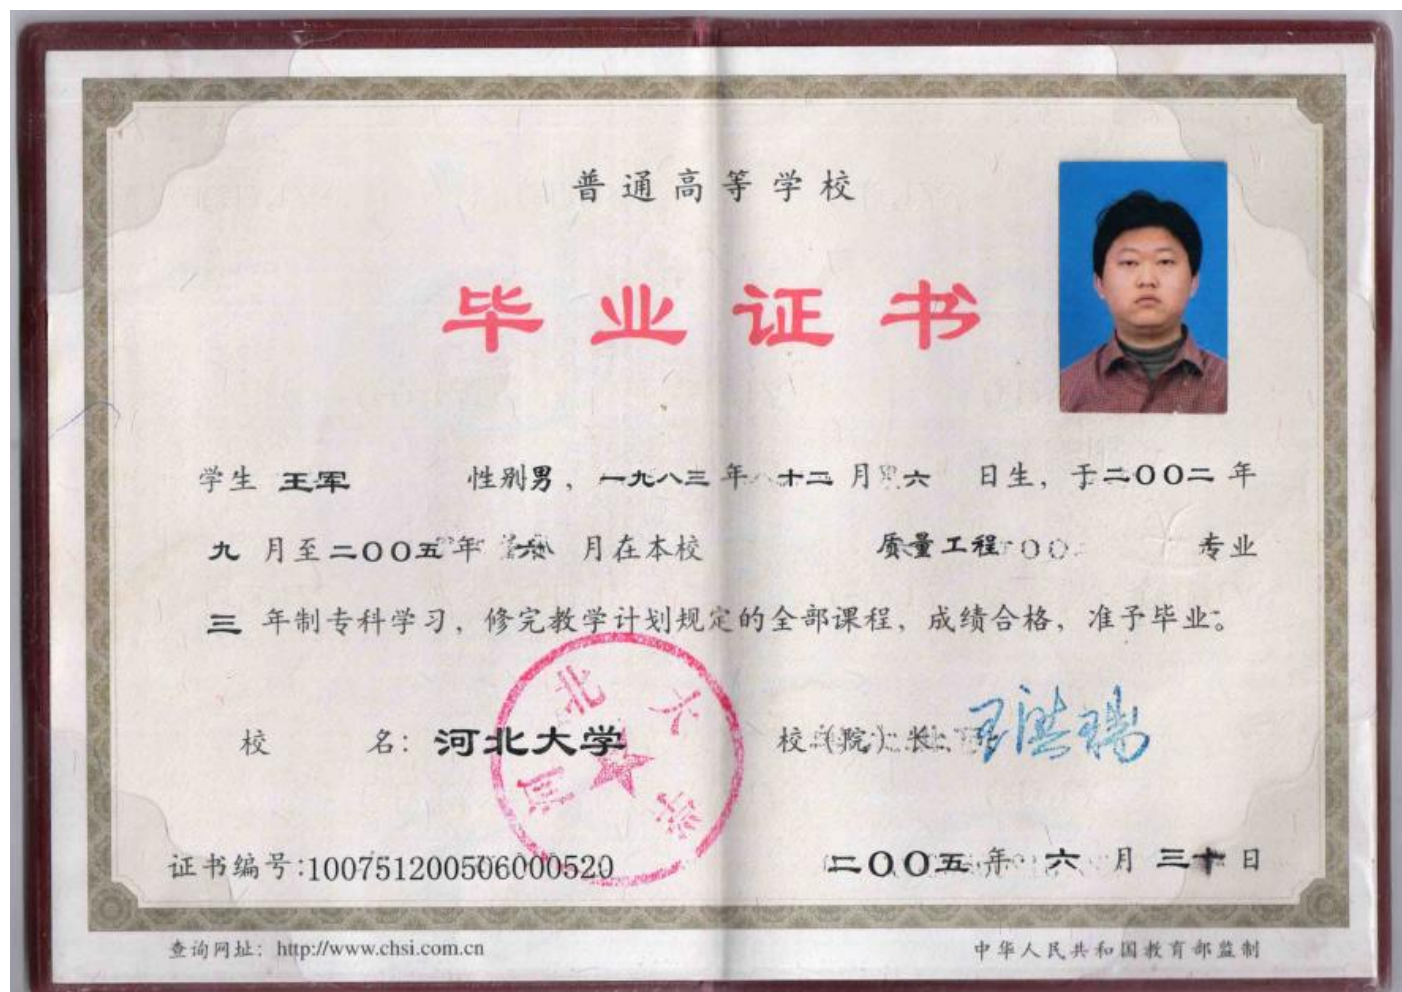 普通高等学校
毕业证书
学生 王军 性别男，一九八三年 十二月 六 日生，于二〇〇二年
九 月至二〇〇五年 六 月在本校 质量工程 专业
三 年制专科学习，修完教学计划规定的全部课程，成绩合格，准予毕业。
校 名：河北大学 校（院）长：
河北大学
证书编号：100751200506000520 二〇〇五年 六 月 三十日
查询网址：http://www.chsi.com.cn 中华人民共和国教育部监制